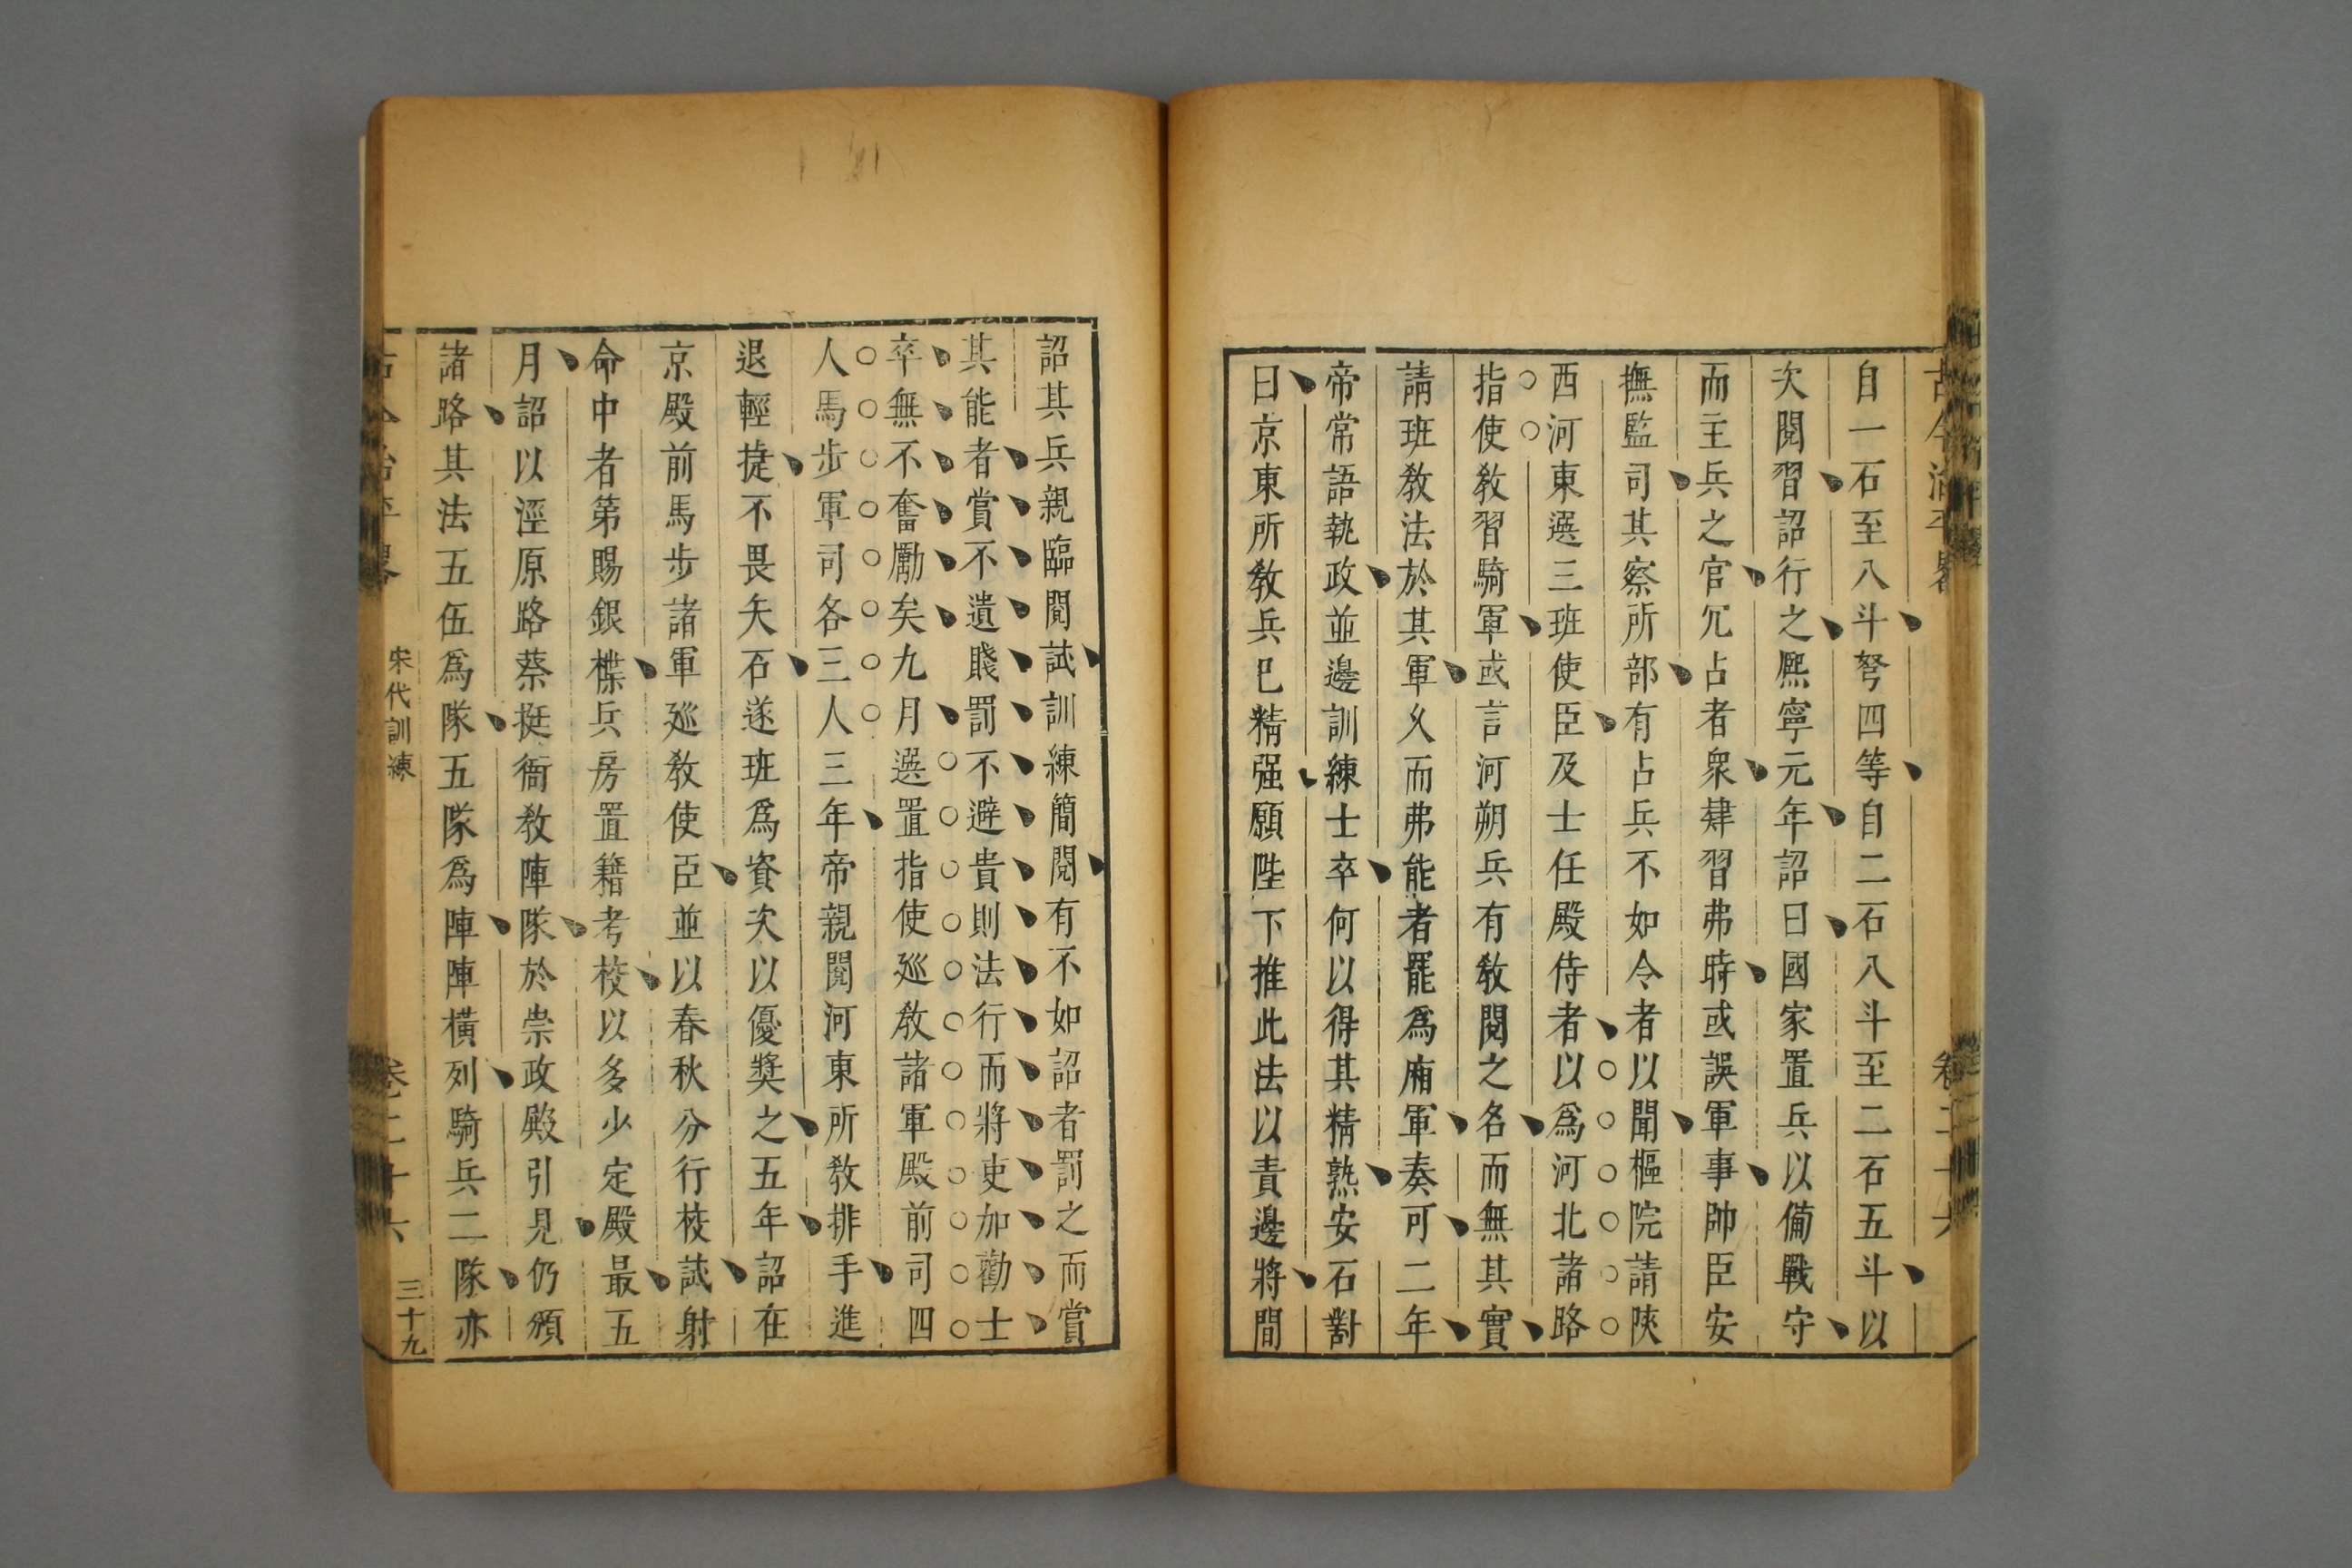 自一石至八斗弩四等自二石八斗至二石五斗以
次閱習詔行之熈寧元年詔曰國家置兵以僃戰守
而主兵之官冗占者衆肄習弗時或誤軍事帥臣安
撫監司其察所部有占兵不如令者以聞樞院請陝
西河東選三班使臣及士任殿侍者以爲河北諸路
指使教習騎軍或言河朔兵有教閱之名而無其實
請班教法於其軍久而弗能者罷爲廂軍奏可二年
帝常語執政並邊訓練士卒何以得其精熟安石對
曰京東所教兵已精强願陛下推此法以責邊將間
詔其兵親臨閱試訓練簡閱有不如詔者罰之而賞
其能者賞不遺賤罰不避貴則法行而將吏加勸士
卒無不奮勵矣九月選置指使廵教諸軍殿前司四
人馬步軍司各三人三年帝親閱河東所教排手進
退輕捷不畏矢石遂班爲資次以優奬之五年詔在
京殿前馬步諸軍廵教使臣並以春秋分行校試射
命中者第賜銀楪兵房置籍考校以多少定殿最五
月詔以涇原路蔡挺衙教陣隊於崇政殿引見仍頒
諸路其法五伍爲隊五隊爲陣陣横列騎兵二隊亦
宋代訓練
卷二十六
三十九